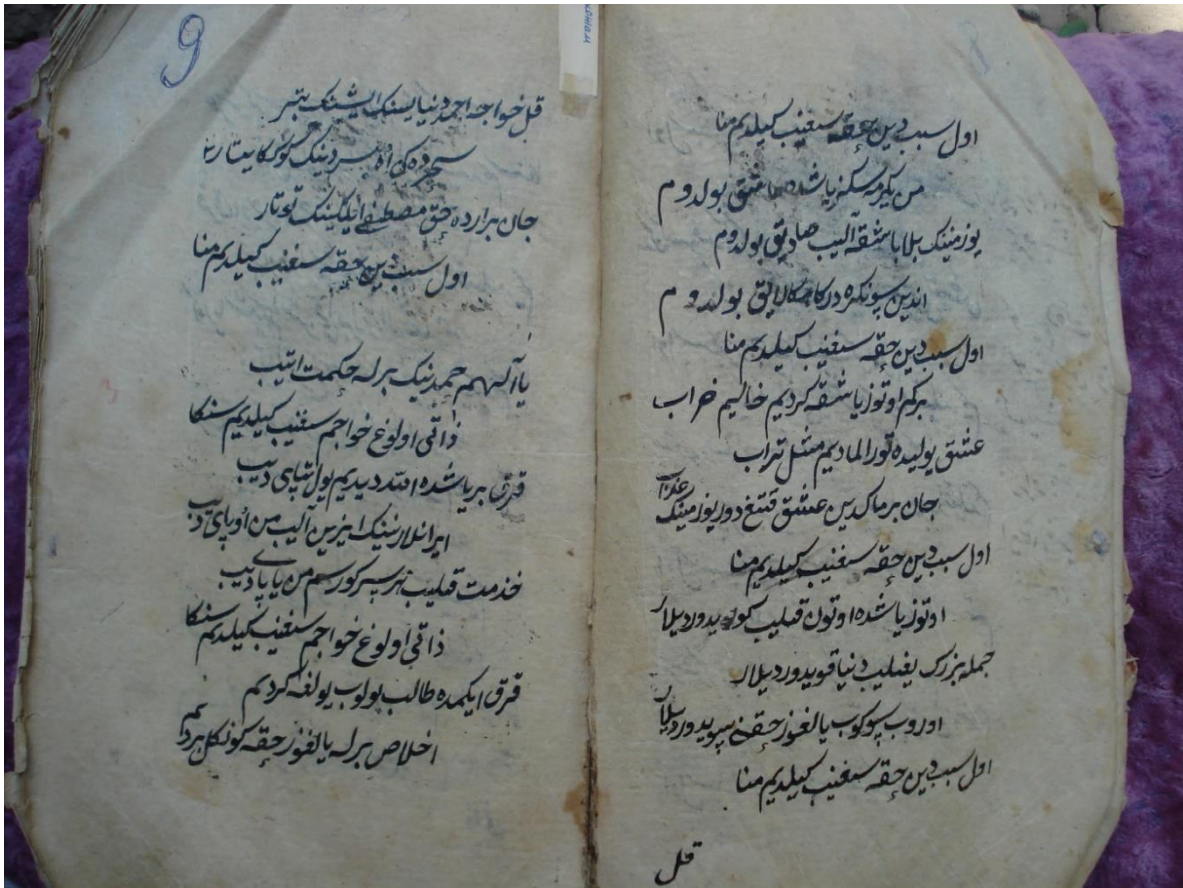 اول سبب دین حقه سغنیب کیلدیم منا
من یکرمه سکز یاشده عاشق بولدوم
یوز مینک بلا باشقه آلیب صادیق بولدوم
اندین سونکره درکاهکا لایق بولدوم
اول سبب دین حقه سغنیب کیلدیم منا
برکم اوتوز یاشقه کردیم خالیم خراب
عشق یولیده تورالمادیم مثل تراب
جان برماکدین عشق قتیغ دور یوز مینک عذاب
اول سبب دین حقه سغنیب کیلدیم منا
اوتوز یاشده اوتون قیلیب کویدوردیلار
جمله بزرک یغیلیب دنیا قویدوردیلار
اوروب سوکوب یالغوز حقنی سویدوردیلار
اول سبب دین حقه سغنیب کیلدیم منا
قل
9
قل خواجه احمد دنیا یسنک ایشنک بتر
سحرده کی اه سردینک کوککا یتار
جان برارده حق مصطفی ایلکینک توتار
اول سبب دین حقه سغنیب کیلدیم منا
یا آلهم حمدینک برله حکمت ایتیب
ذاتی اولوغ خواجم سغنیب کیلدیم سنکا
قرق بر یاشده الله دیدیم یول تپای دیب
ایرانلارنینک ایزین آلیب من اوپای دیب
خذمت قیلیب هر سر کورسم من یاپای دیب
ذاتی اولوغ خواجم سغنیب کیلدیم سنکا
قرق ایکمده طالب بولوب یولغه کردیم
اخلاص برله یالغوز حقه کونکل بردیم